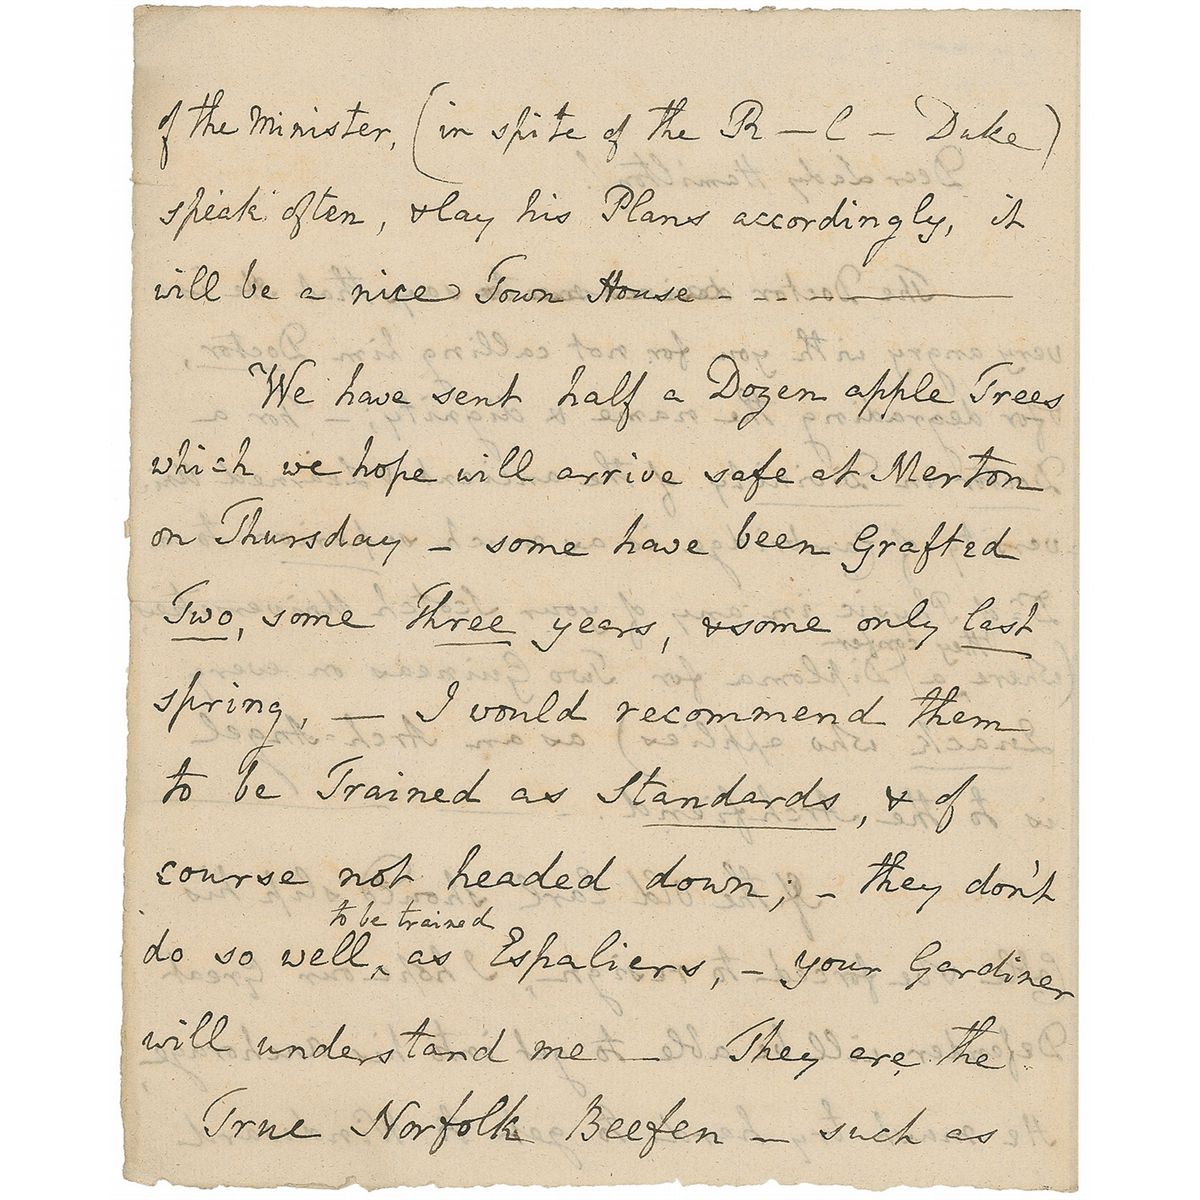 of the Minister, (in spite of the R — C — Duke)
speak often, & lay his Plans accordingly, it
will be a nice Town House - —
We have sent half a Dozen apple Trees
which we hope will arrive safe at Merton
on Thursday — some have been Grafted
Two, some Three years, & some only last
spring, — I would recommend them
to be Trained as Standards, & of
course not headed down; - they don't
to be trained
do so well ^ as Espaliers, — your Gardiner
will understand me — They are the
True Norfolk Beefen — such as